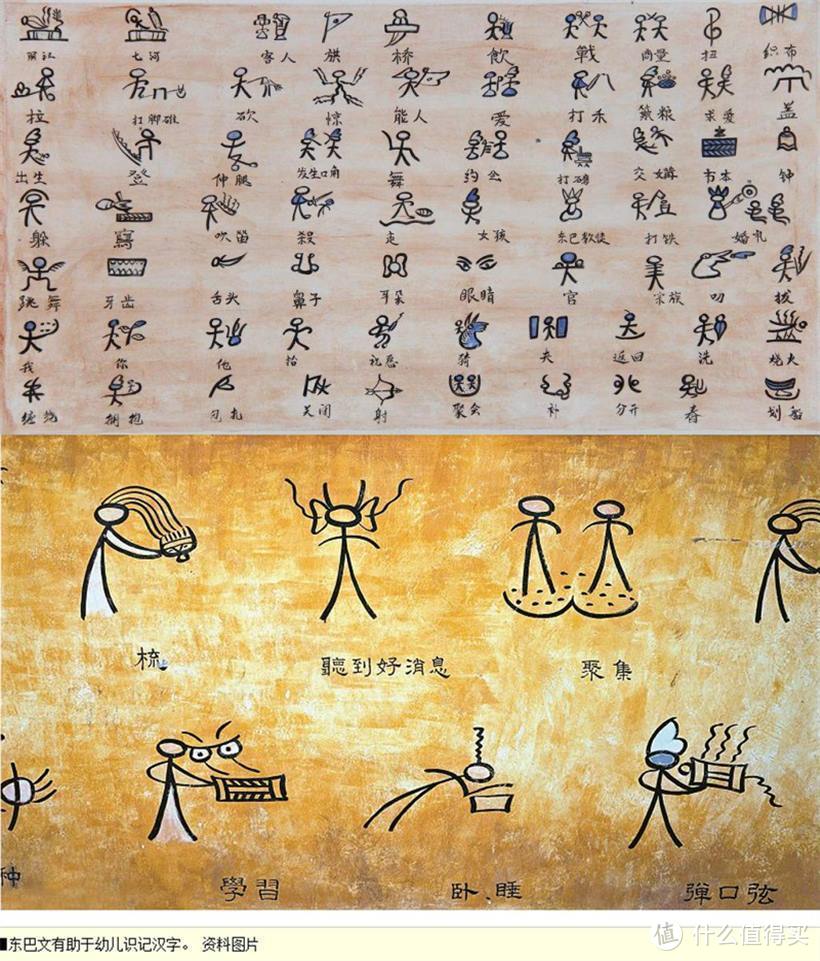 七河 客人 旗 桥 飲 戰 商量 扭 织布
拉 打脚碓 砍 惊 能人 爱 打禾 筹粮 求爱 盖
出生 登 伸腿 发生口角 舞 约会 打 交媾 书本 钟
躲 寫 吹笛 殺 走 女孩 东巴教徒 打铁 婚礼
跳舞 牙齿 舌头 鼻子 耳朵 眼睛 官 家族 叨 拔
我 你 他 抬 祝愿 骑 夹 返回 洗 烧火
缠绕 拥抱 包扎 关闭 射 聚会 补 分开 春 划船
梳 聽到好消息 聚集
种 學習 卧、睡 彈口弦
东巴文有助于幼儿识记汉字。 资料图片
值 什么值得买